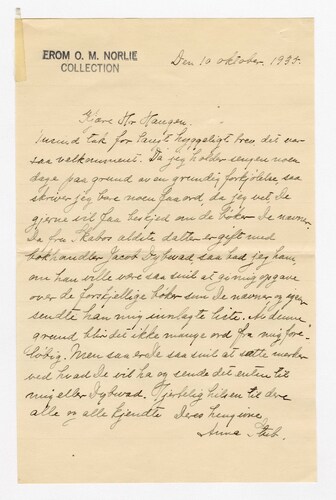 FROM O. M. NORLIE
COLLECTION
Den 10 oktober 1935.
Kjære Mr Haugen.
tusind tak for langt hyggeligt brev det var
saa velkomment. Da jeg holder sengen noen
dage paa grund av en grundig forkjølelse, saa
skriver jeg bare noen faa ord, da jeg vel De
gjerne vil faa besked om de bøker De nævner.
Da fru datter er gift med
bokhandler Jacob Dybwad saa bad jeg ham,
om han ville være saa snil at gi mig opgave
over de forskjellige bøker som De nævner og igaar
sendte han mig innlagte liste. Av denne
grund blir det ikke mange ord fra mig fore-
løbig. Men saa er De saa snil at sætte merker
ved hvad De vil ha og sende det enten til
mig eller Dybwad. Hjertelig hilsen til dere
alle og alle kjendte Deres hengivne
Anna